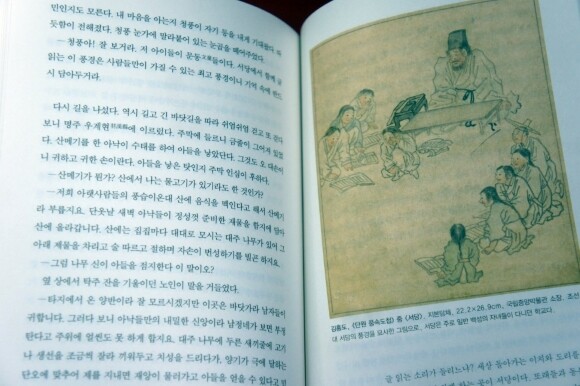 민인지도 모른다. 내 마음을 아는지 청풍이 자기 등을 내게 기대한다. 따
듯함이 전해졌다. 청풍 눈가에 말라붙어 있는 눈곱을 떼어주었다.
―청풍아! 잘 보거라. 저 아이들이 문동文童들이다. 서당에서 함께 글
읽는 이 풍경은 사람들만이 가질 수 있는 최고 풍경이니 기억 속에 반드
시 담아두거라.
다시 길을 나섰다. 역시 길고 긴 바닷길을 따라 쉬엄쉬엄 걷고 또 걷다
보니 명주 우계현에 이르렀다. 주막에 들르니 금줄이 그어져 있었
다. 산메기를 한 아낙이 수태를 하여 아들을 낳았단다. 그것도 오 대손이
니 귀하고 귀한 손이란다. 아들을 낳은 탓인지 주막 인심이 후하다.
―산메기가 뭔가? 산에서 나는 물고기가 있기라도 한 것인가?
―저희 아랫사람들의 풍습이온대 산에 음식을 멕인다고 해서 산메기
라 부릅지요. 단옷날 새벽 아낙들이 정성껏 준비한 재물을 함지에 담아
산에 올라갑니다. 산에는 집집마다 대대로 모시는 대주 나무가 있어 그
아래 재물을 차리고 술 따르고 절하며 자손이 번성하기를 빌곤 하지요.
―그럼 나무 신이 아들을 점지한다 이 말이오?
옆 상에서 탁주 잔을 기울이던 노인이 말을 거들었다.
―타지에서 온 양반이라 잘 모르시겠지만 이곳은 바닷가라 남자들이
귀합니다. 그러다 보니 아낙들만의 내밀한 신앙이라 남정네가 보면 부정
탄다고 주위에 얼씬도 못 하게 합지요. 대주 나무에 두른 새끼줄에 고기
나 생선을 조금씩 잘라 끼워두고 치성을 드리다가, 양기가 극에 달하는
단오에 맞추어 제를 지내면 재앙이 물러가고 아들을 얻을 수 있다고 믿
김홍도, 《단원 풍속도첩》 중 〈서당〉, 지본담채, 22.2×26.9cm, 국립중앙박물관 소장. 조선
대 서당의 풍경을 묘사한 그림으로, 서당은 주로 일반 백성의 자녀들이 다니던 학교다.
글 읽는 소리가 들리느냐? 세상 돌아가는 이치와 도리를